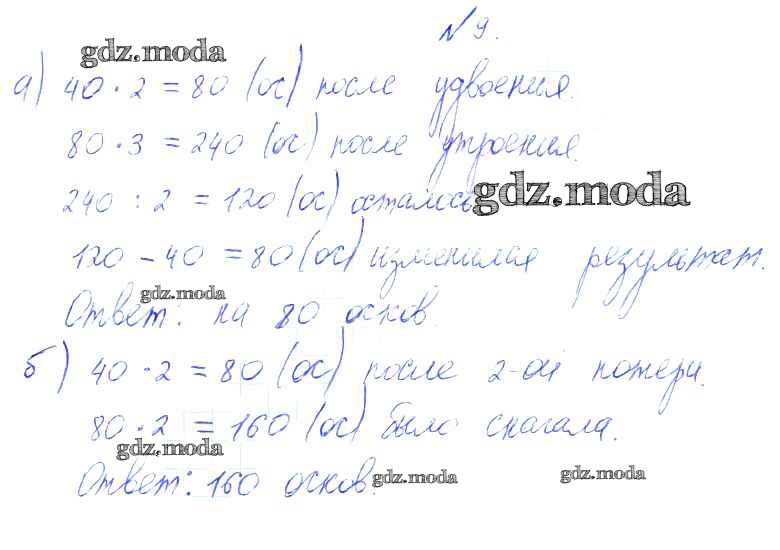 № 9.
gdz.moda
а) 40 · 2 = 80 (ос) после удвоения.
80 · 3 = 240 (ос) после утроения.
240 : 2 = 120 (ос) осталось
gdz.moda
120 – 40 = 80 (ос) изменился результат.
gdz.moda
Ответ: на 80 осков.
б) 40 · 2 = 80 (ос) после 2-ой потери.
80 · 2 = 160 (ос) было сначала.
gdz.moda
Ответ: 160 осков.
gdz.moda
gdz.moda